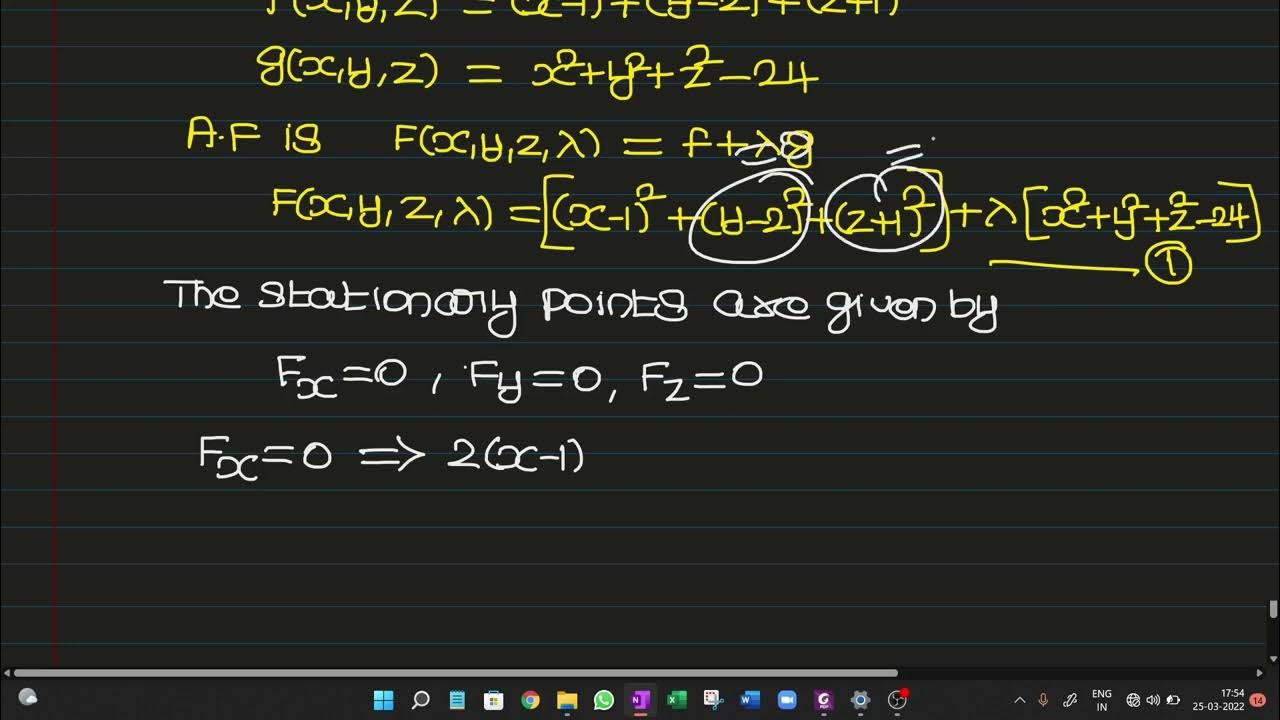 f(x,y,z) = (x-1)²+(y-2)²+(z+1)²
g(x,y,z) = x²+y²+z²-24
A.F is F(x,y,z,λ) = f+λg
=0 =
F(x,y,z,λ) = [(x-1)²+(y-2)²+(z+1)²]+λ[x²+y²+z²-24]
①
The stationary points are given by
Fx=0, Fy=0, Fz=0
Fx=0 ⇒ 2(x-1)
ENG
IN
17:54
25-03-2022
14